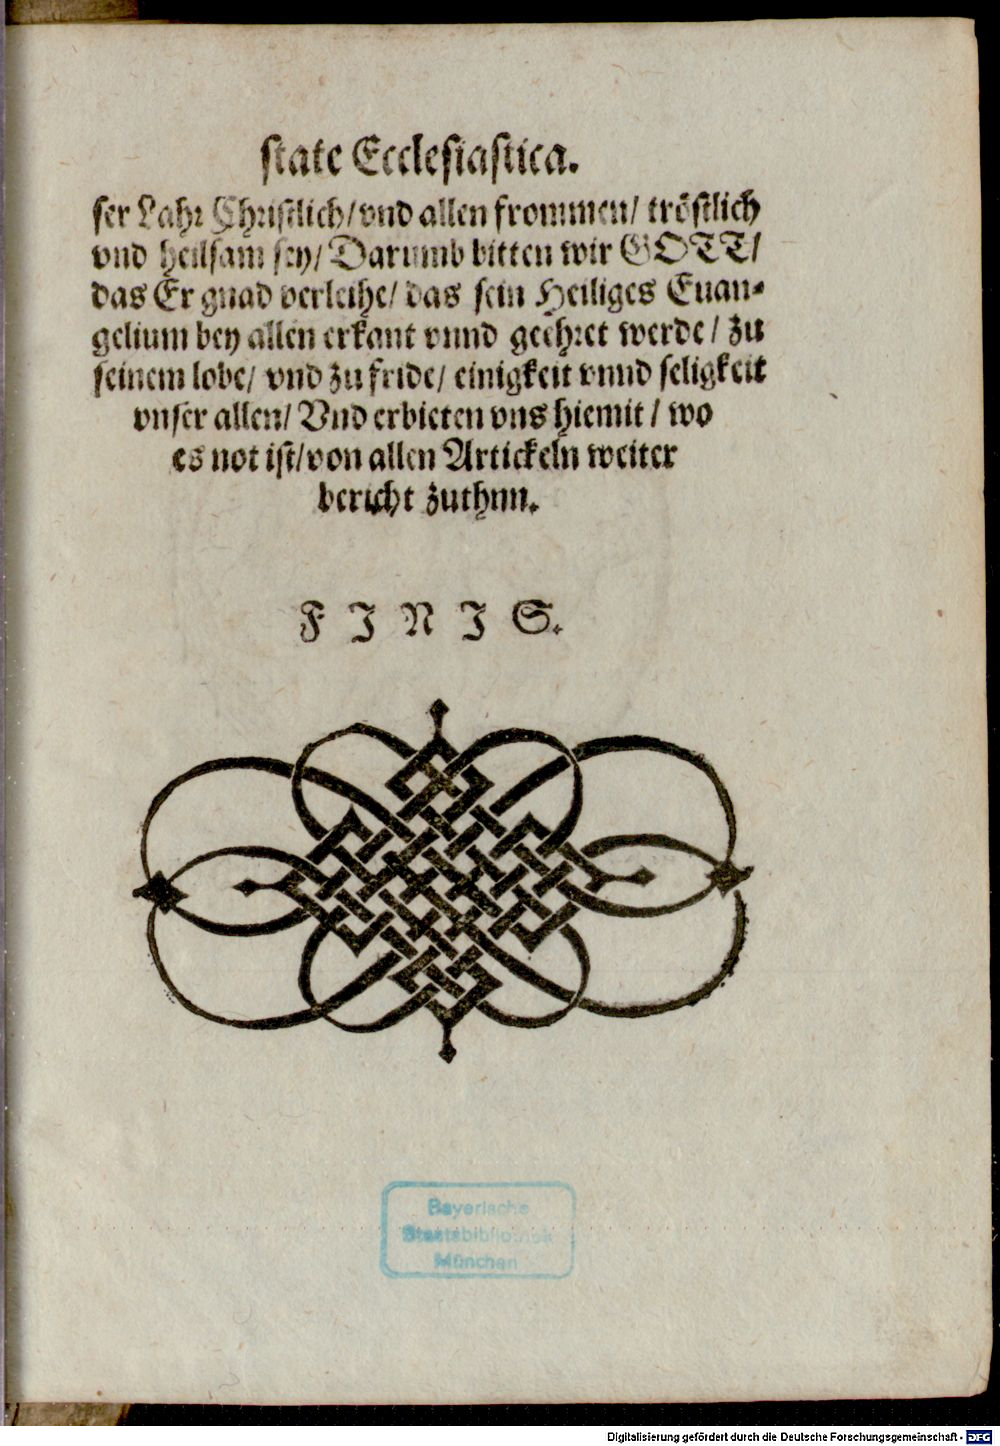 state Ecclesiastica.
ser Lahr Christlich/ vnd allen frommen/ tröstlich
vnd heilsam sey/ Darumb bitten wir GOTT/
das Er gnad verleihe/ das sein Heiliges Euan-
gelium bey allen erkant vnnd geehret werde/ zu
seinem lobe/ vnd zu fride/ einigkeit vnnd seligkeit
vnser allen/ Vnd erbieten vns hiemit/ wo
es not ist/ von allen Artickeln weiter
bericht zuthun.
F I N I S.
Bayerische
Staatsbibliothek
München
Digitalisierung gefördert durch die Deutsche Forschungsgemeinschaft - DFG